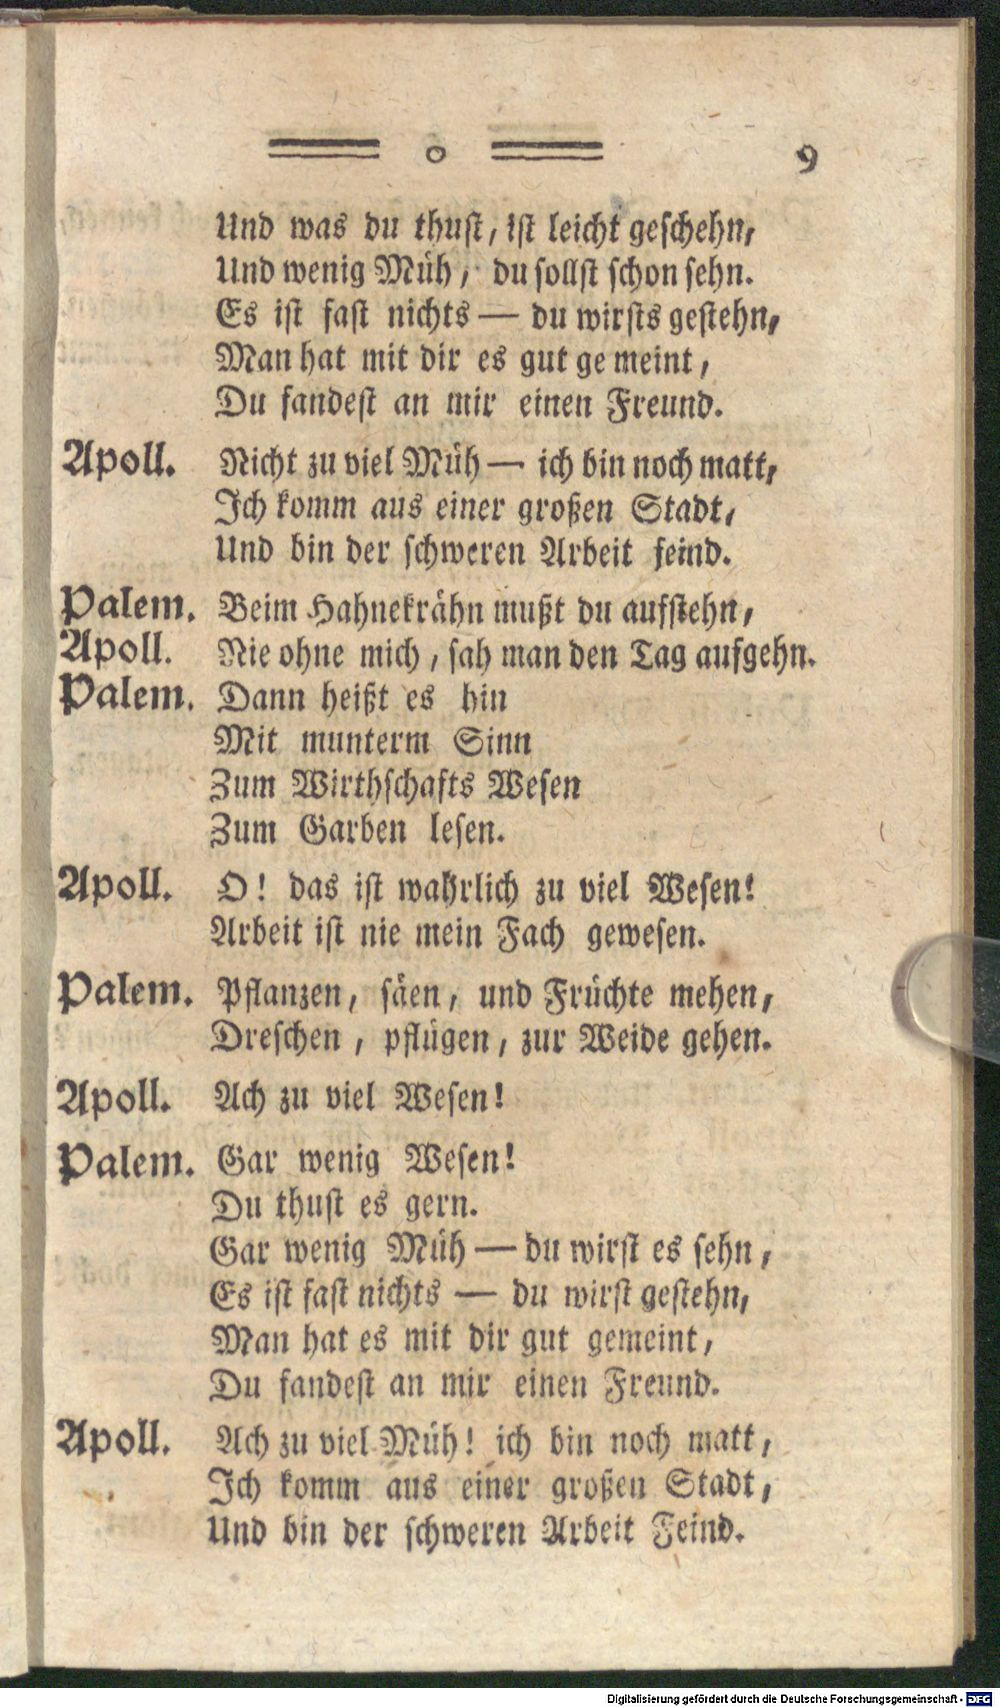 o 9
Und was du thust, ist leicht geschehn,
Und wenig Müh, du sollst schon sehn.
Es ist fast nichts — du wirsts gestehn,
Man hat mit dir es gut gemeint,
Du fandest an mir einen Freund.
Apoll. Nicht zu viel Müh — ich bin noch matt,
Ich komm aus einer großen Stadt,
Und bin der schweren Arbeit feind.
Palem. Beim Hahnekrähn mußt du aufstehn,
Apoll. Nie ohne mich, sah man den Tag aufgehn.
Palem. Dann heißt es hin
Mit munterm Sinn
Zum Wirthschafts Wesen
Zum Garben lesen.
Apoll. O! das ist wahrlich zu viel Wesen!
Arbeit ist nie mein Fach gewesen.
Palem. Pflanzen, säen, und Früchte mehen,
Dreschen, pflügen, zur Weide gehen.
Apoll. Ach zu viel Wesen!
Palem. Gar wenig Wesen!
Du thust es gern.
Gar wenig Müh — du wirst es sehn,
Es ist fast nichts — du wirst gestehn,
Man hat es mit dir gut gemeint,
Du fandest an mir einen Freund.
Apoll. Ach zu viel Müh! ich bin noch matt,
Ich komm aus einer großen Stadt,
Und bin der schweren Arbeit Feind.
Digitalisierung gefördert durch die Deutsche Forschungsgemeinschaft - DFG